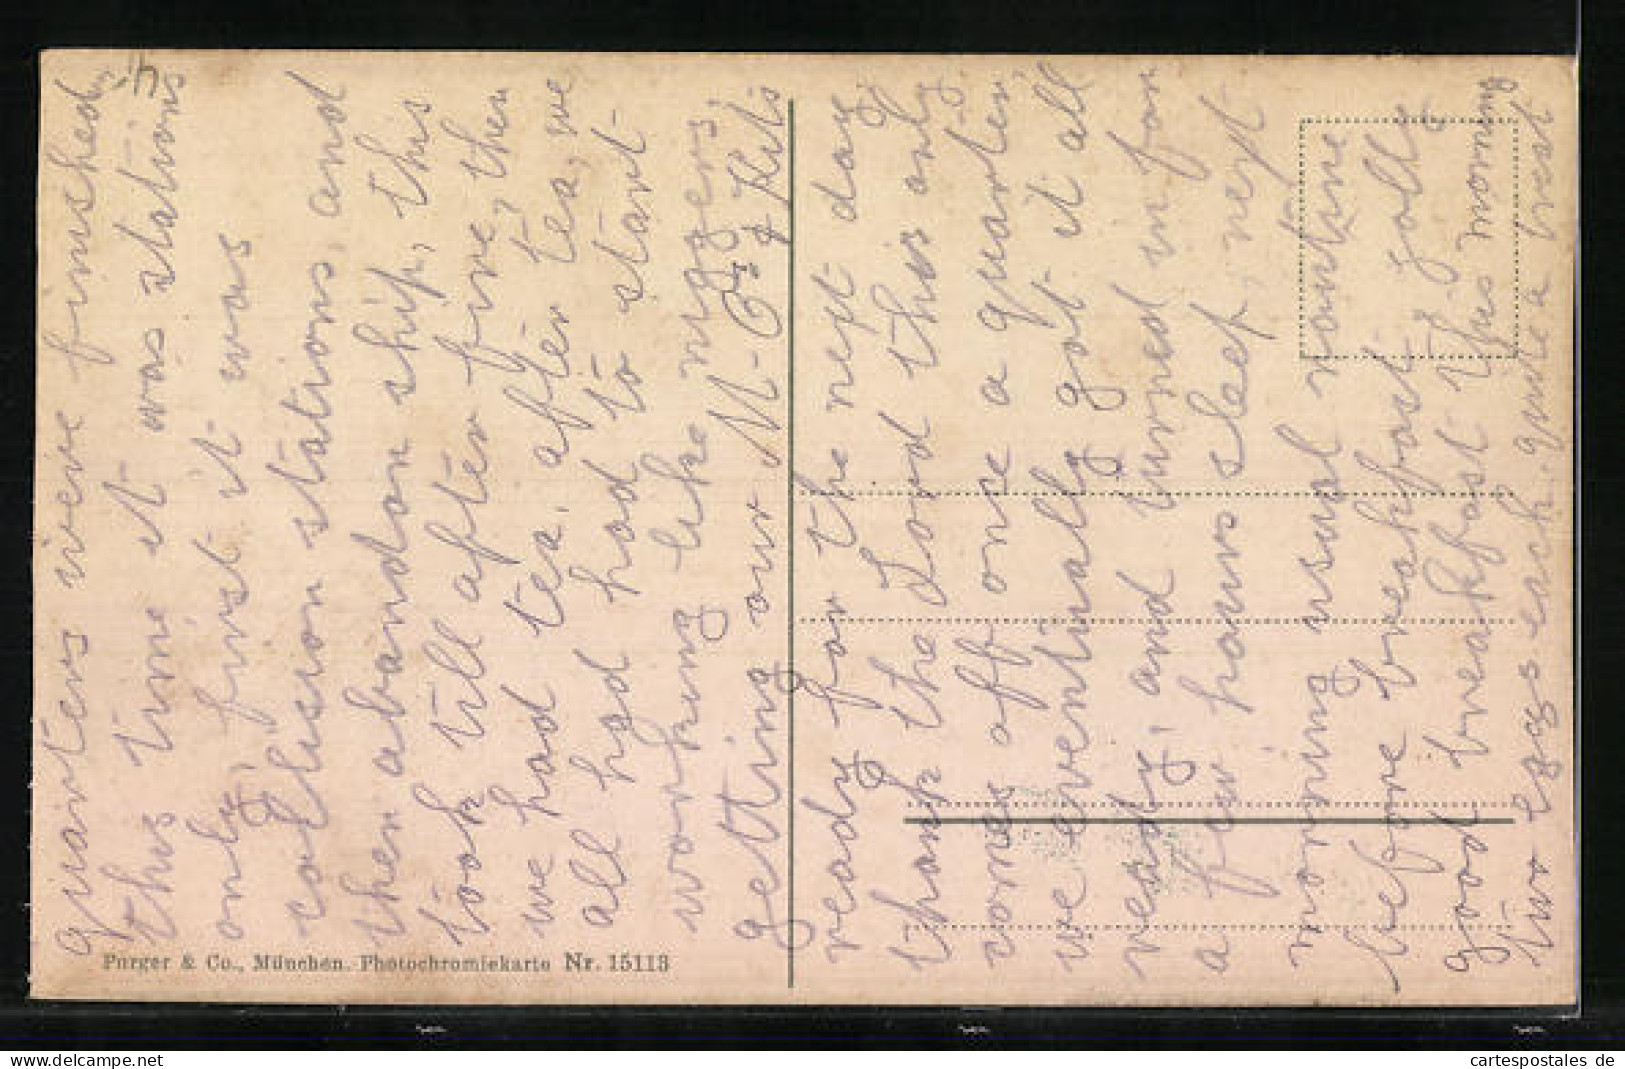 5
quarters were finished,
this time it was stations
only, first it was
collision stations, and
then abandon ship, this
took till after five, then
we had tea, after tea, we
all had had to start
working like niggers,
getting our M-G's & Kits
ready for the next day,
thank the Lord this only
comes off once a quarter,
we eventually got it all
ready, and turned in for
a few hours sleep, next
morning usual routine
before breakfast, jolly
good breakfast this morning
two eggs each, quite a treat
Purger & Co., München. Photochromiekarte Nr. 15113
cartespostales de